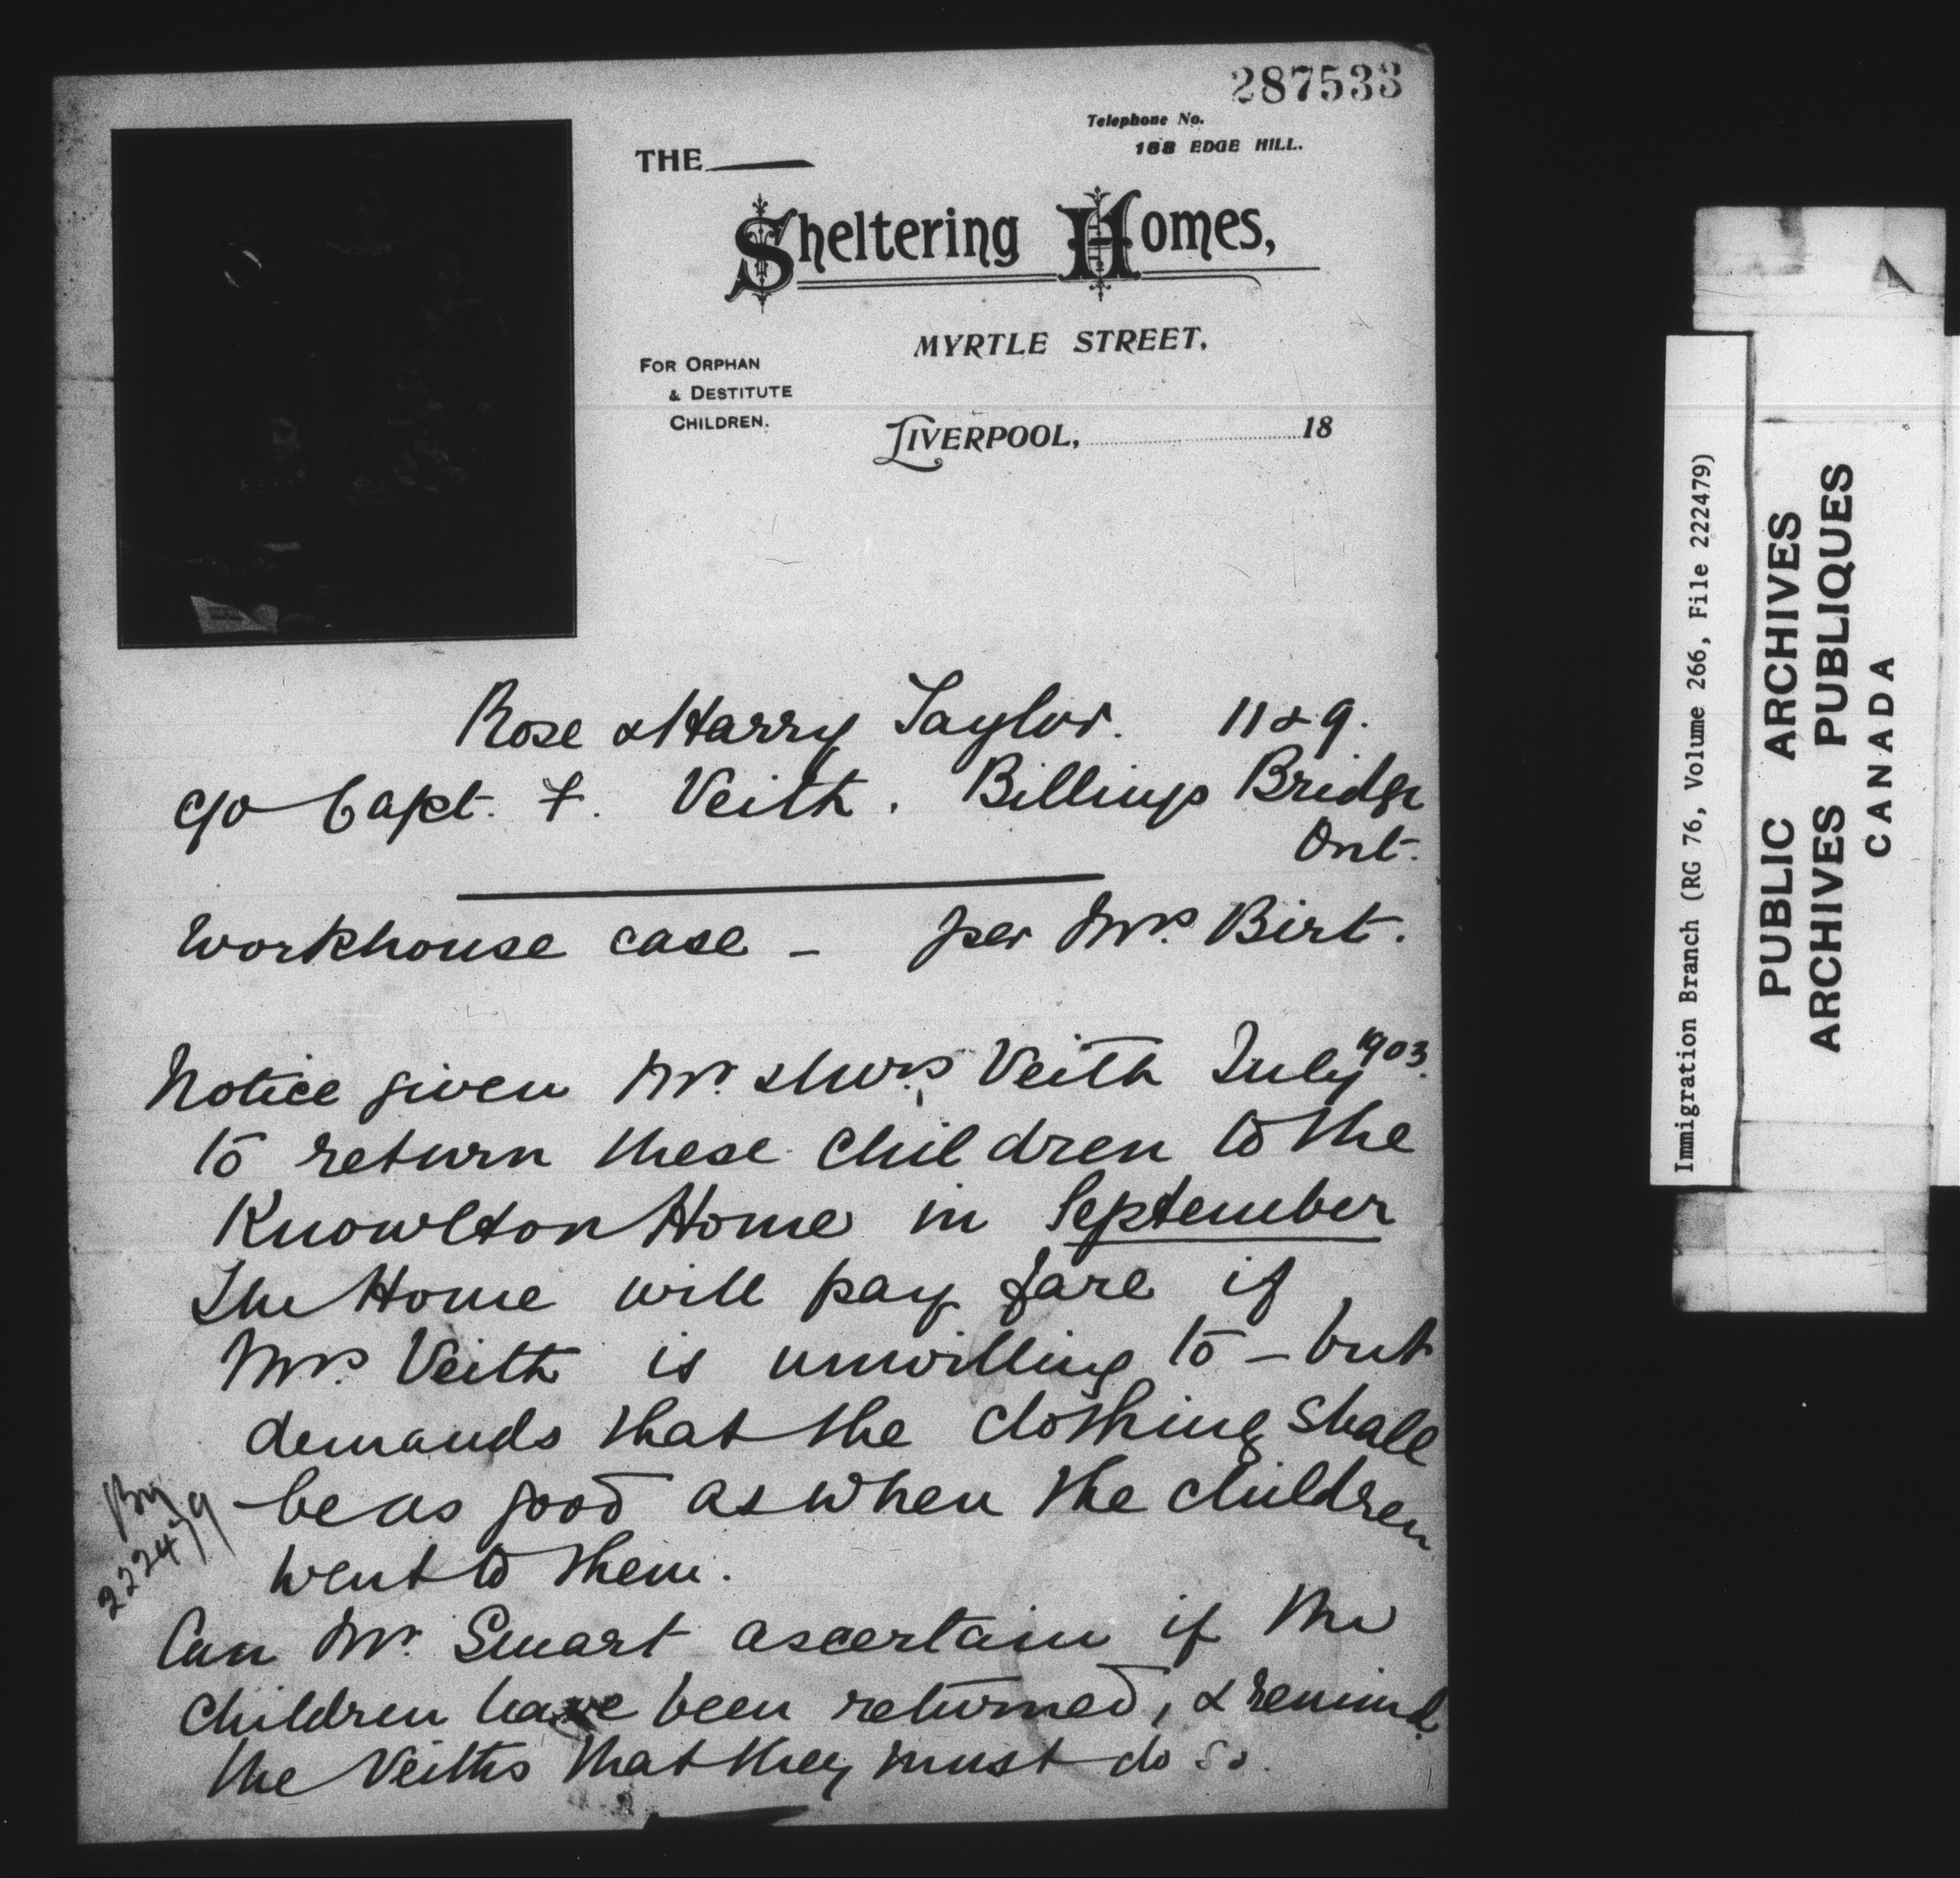 287533
Telephone No.
168 EDGE HILL.
THE
Sheltering Homes,
MYRTLE STREET,
FOR ORPHAN
& DESTITUTE
CHILDREN.
LIVERPOOL, 18
Rose & Harry Taylor. 11 & 9.
c/o Capt. F. Veith. Billings Bridge
Ont.
Workhouse case - per Mrs. Birt.
Notice given Mr. & Mrs. Veith July 1903.
to return these children to the
Knowlton Home in September
The Home will pay fare if
Mrs. Veith is unwilling to - but
demands that the clothing shall
be as good as when the children
went to them.
Can Mr. Smart ascertain if the
children have been returned, & remind
the Veiths that they must do so.
222479
Immigration Branch (RG 76, Volume 266, File 222479)
PUBLIC ARCHIVES
ARCHIVES PUBLIQUES
CANADA